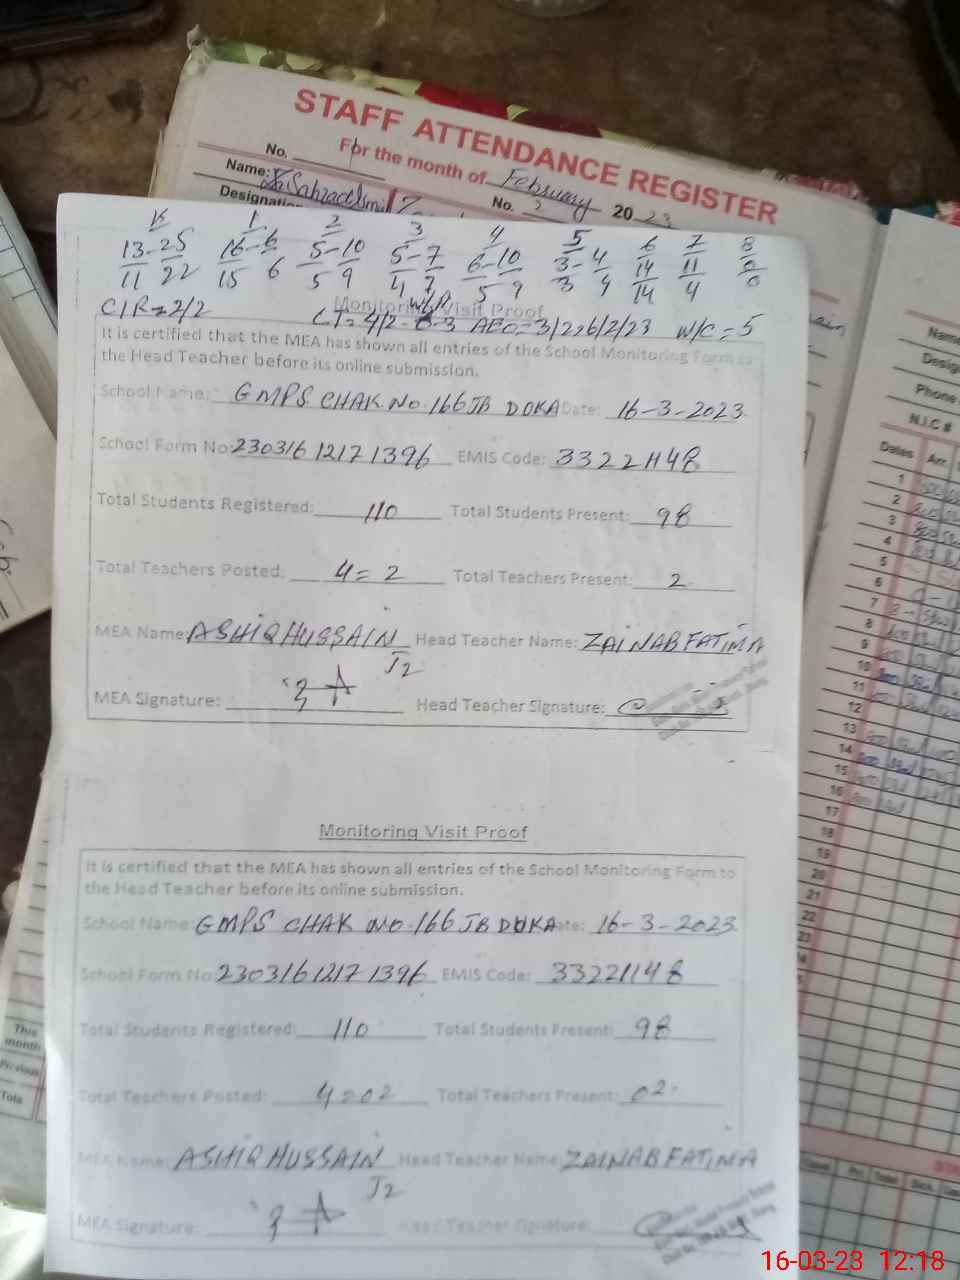 STAFF ATTENDANCE REGISTER
No.
For the month of February 2023
Name:
Designation
No. 2
K 1 2 3 4 5 6 7 8
13-25 16-6 5-10 5-7 6-10 3-4 14 11 0
11 22 15 6 5 9 4 7 5 9 3 4 14 4 0
C/R=2/2
Monitoring Visit Proof
AEO=3/2,6/2/23 W/C=5
It is certified that the MEA has shown all entries of the School Monitoring Form to
the Head Teacher before its online submission.
School Name: GMPS CHAK NO. 166 JB DOKA Date: 16-3-2023
School Form No: 230316 1217 1396 EMIS Code: 33221148
Total Students Registered: 110 Total Students Present: 98
Total Teachers Posted: 4=2 Total Teachers Present: 2
MEA Name: ASHIQ HUSSAIN Head Teacher Name: ZAINAB FATIMA
J2
MEA Signature: Head Teacher Signature:
Monitoring Visit Proof
It is certified that the MEA has shown all entries of the School Monitoring Form to
the Head Teacher before its online submission.
School Name: GMPS CHAK NO. 166 JB DOKA Date: 16-3-2023
School Form No: 230316 1217 1396 EMIS Code: 33221148
Total Students Registered: 110 Total Students Present: 98
Total Teachers Posted: 4=02 Total Teachers Present: 02
MEA Name: ASHIQ HUSSAIN Head Teacher Name: ZAINAB FATIMA
J2
MEA Signature: Head Teacher Signature:
Name
Desig
Phone
N.I.C #
Dates Arr.
1
2
3
4
5
6
7
8
9
10
11
12
13
14
15
16
17
18
19
20
21
22
23
This
month
Previous
Tota
16-03-23 12:18